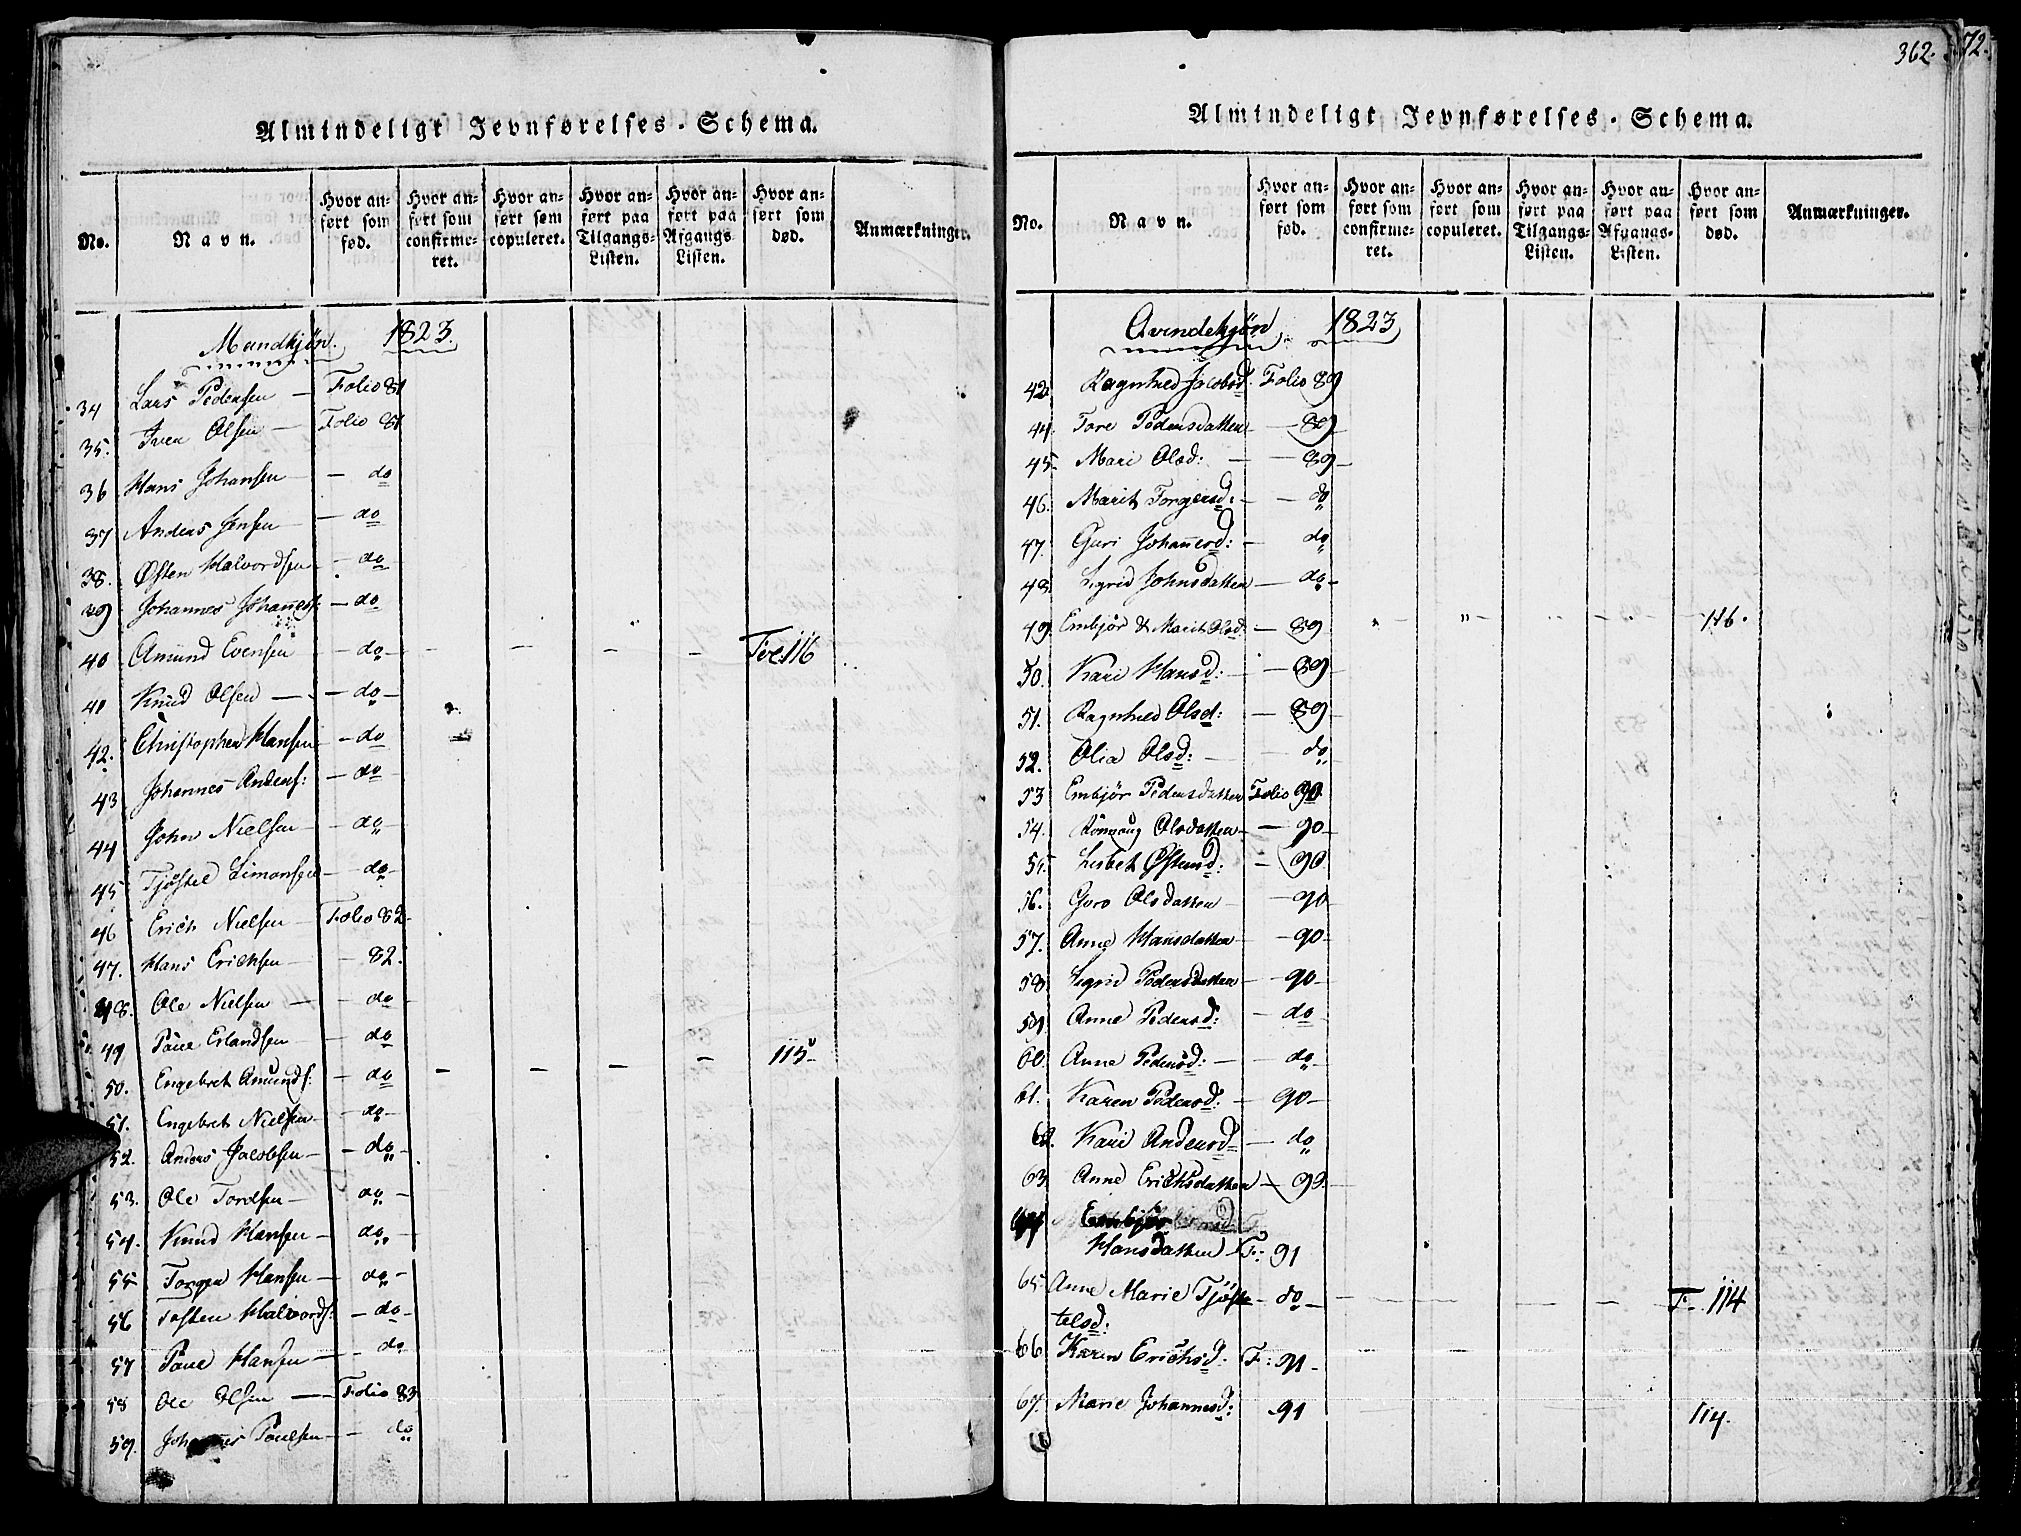 Almindeligt Jevnførelses-Schema.
No.
Navn.
Hvor anført som fød.
Hvor anført som confirmeret.
Hvor anført som copuleret.
Hvor anført paa Tilgangs-Listen.
Hvor anført paa Afgangs-Listen.
Hvor anført som død.
Anmærkninger.
Mandkjøn. 1823.
34 Lars Pedersen — Folio 81
35. Iver Olsen — Folio 81
36 Hans Johansen — do
37 Anders Jensen — do
38. Østen Halvordsen — do
39 Johannes Johannesf: — do
40 Amund Evensen — do — — — — — Fol: 116
41 Knud Olsen — — do —
42. Christopher Hansen — do
43 Johannes Andersf: — do
44 John Nielsen — do
45 Tjøstel Simonsen — do
46 Erich Nielsen — Folio 82
47. Hans Erichsen — 82.
48. Ole Nielsen — do
49 Paul Erlandsen — do
50. Engebret Amundsf: — do — — — — 115
51. Engebret Nielsen — do
52. Anders Jacobsen — do
53. Ole Tordsen — do
54. Knud Hansen — do
55 Torger Hansen — do
56 Tosten Halvordsf: — do
57 Paul Hansen — do
58 Ole Olsen — Folio 83
59. Johannes Paulsen — do
362.
72.
Almindeligt Jevnførelses-Schema.
No.
Navn.
Hvor anført som fød.
Hvor anført som confirmeret.
Hvor anført som copuleret.
Hvor anført paa Tilgangs-Listen.
Hvor anført paa Afgangs-Listen.
Hvor anført som død.
Anmærkninger.
Qvindekjøn 1823
42 Ragnhild Jacobsd. Folio 89
44. Tore Pedersdatter — 89
45. Mari Olsd: — 89
46. Marit Torgersd: — do
47. Guri Johannesd: — do
48 Sigrid Johnsdatter — do
49 Embjør & Marit Olsd. — 89 — — — — 116.
50. Kari Hansd: — 89
51. Ragnhild Olsd: — 89
52. Olia Olsd: — do
53 Embjør Pedersdatter Folio 90
54. Rønnaug Olsdatter — 90
55 Lisbet Østensd: — 90
56. Guro Olsdatter — 90
57. Anne Hansdatter — 90
58. Sigrid Pedersdatter — 90
59. Anne Pedersd: — do
60. Anne Pedersd: — do
61. Karen Pedersd: — 90
62. Kari Andersd — do
63 Anne Erichsdatter — 90.
64 Embjør
Hansdatter F: 91
65. Anne Marie Tjøs-
telsd: — do — — — — F. 114
66 Karen Erichsd. F: 91
67. Marie Johannesd: 91 114.